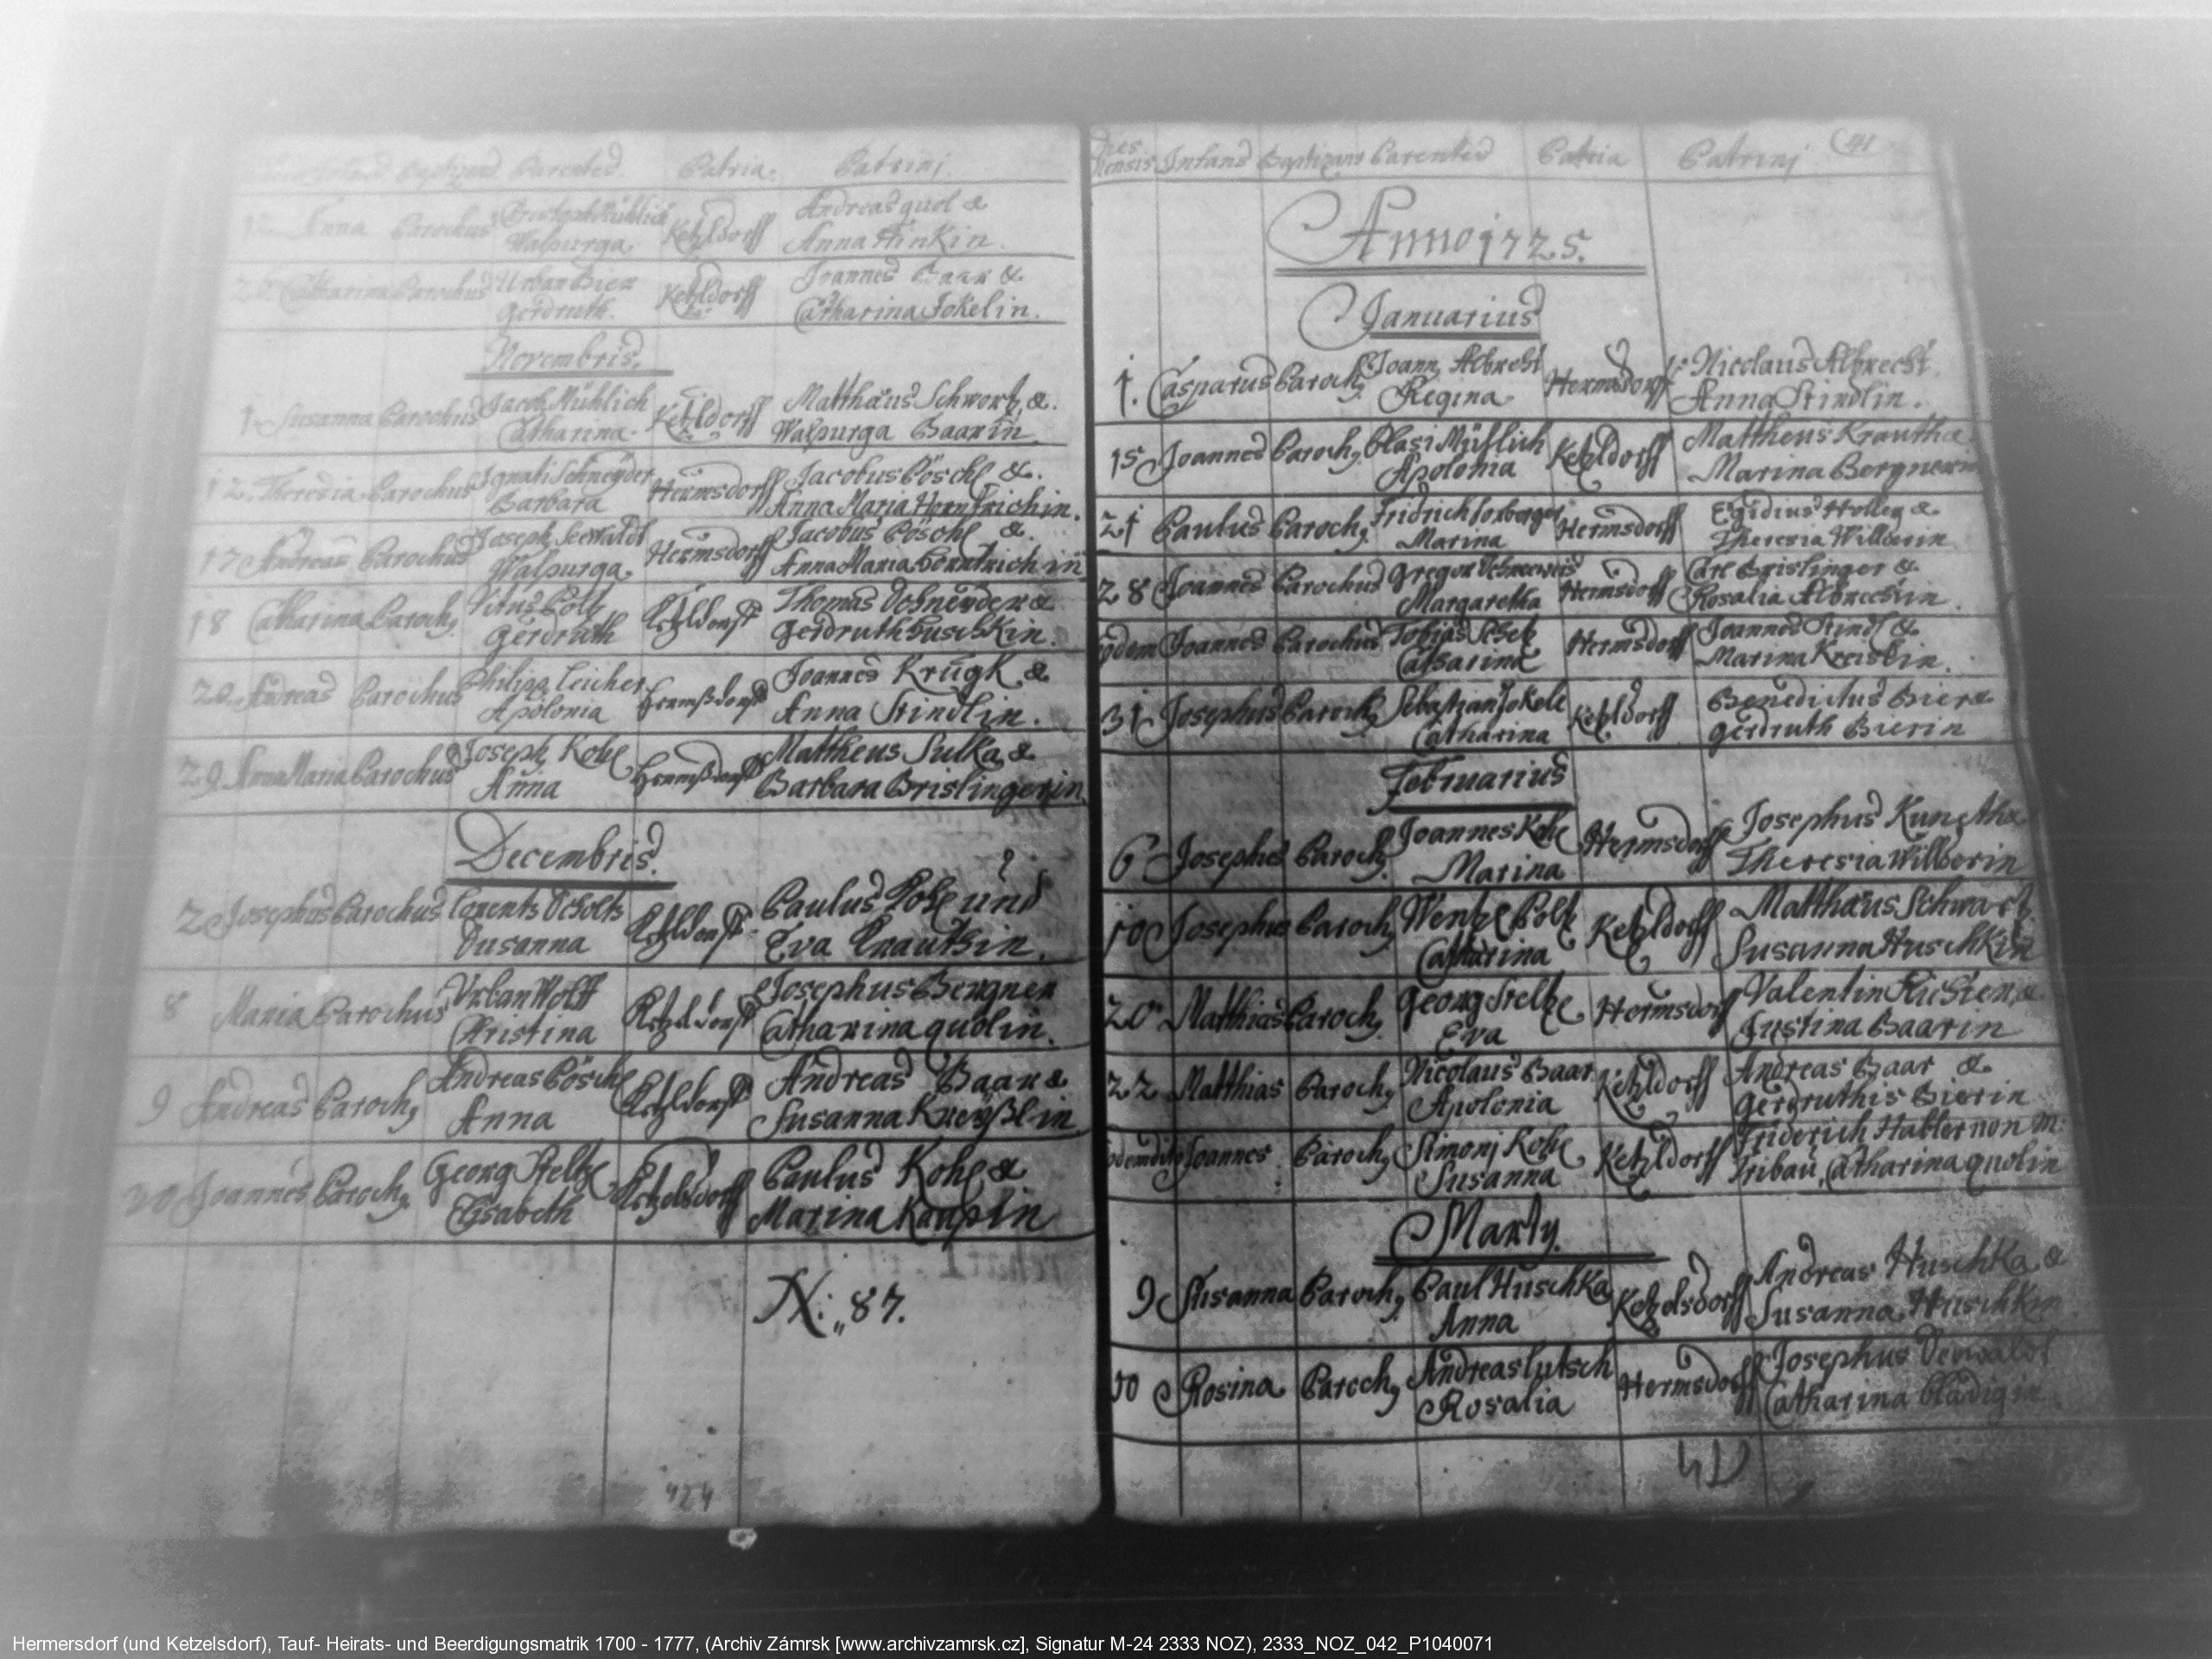 Infans Baptizans Parentes. Patria. Patrinj.
12 Anna Parochus Walpurga Ketzldorff Andreas quol &
Anna Hinkin.
Catharina Parochus Urban Bier Gerdruth. Ketzldorff Joannes Baar &
Catharina Jokelin.
Novembris.
1. Susanna Parochus Jacob Mühlich Catharina. Ketzldorff Matthäus Schwortz, &.
Walpurga Baarin.
12. Theresia Parochus Ignati Schneÿder Barbara Hermsdorff Jacobus Pöschl &.
Anna Maria Herntrichin.
17 Andreas Parochus Joseph Seewaldt Walpurga. Hermsdorff Jacobus Pöschl &.
Anna Maria
18 Catharina Paroch9 Vitus Poltz Gerdruth Ketzldorff Thomas Schneÿder &
Gerdruth Huschkin.
20. Andreas Parochus Philipp Leicher Apolonia Hermßdorff Joannes Krügk &
Anna Stindlin.
29 Anna Maria Parochus Joseph Kohl Anna Hermßdorff Mattheus Sulka &
Barbara Brislingerin.
Decembris.
2 Josephus Parochus Lorents Scholts Susanna Ketzldorff Paulus Kohl und
Eva Krautßin.
8 Maria Parochus Urban Wolff Christina Ketzldorff Josephus Bergner
Catharina quolin.
9 Andreas Paroch9 Andreas Pöschl Anna Ketzldorff Andreas Baar &
Susanna Kreÿßlin
30 Joannes Paroch9 Georg Steltze Elisabeth Ketzelsdorff Paulus Kohl &
Marina
N: „ 87.
424
Dies Mensis Infans Baptizans Parentes Patria Patrinj 41
Anno 1725.
Januarius
1. Casparus Paroch9 Joann Albrecht Regina Hermsdorff Nicolaus Albrecht.
Anna Stindlin.
15 Joannes Paroch9 Blasi Müflich Apolonia Ketzldorff Mattheus Krauth &
Marina Bergnerin
21 Paulus Paroch9 Fridrich Marina Hermsdorff Egidius Holleg &
Theresia
28 Joannes Parochus Gregor Margaretha Hermsdorff Carl Brislinger &
Rosalia Albrechtin.
eodem Joannes Parochus Tobias Catharina Hermsdorff Joannes Stindl &.
Marina
31 Josephus Paroch9 Sebastian Jokele Catharina Ketzldorff Benedictus Bier &
Gerdruth Bierin
Februarius
6 Josephus Paroch9 Joannes Kohl Marina Hermsdorff Josephus Kungth &
Theresia
10 Josephus Paroch9 Wentzl Poltz Catharina Ketzldorff Matthäus Schwartz.
Susanna Huschkin
20 Matthias Paroch9 Georg Steltze Eva Hermsdorff Valentin Richter, &.
Justina Baarin
22 Matthias Paroch9 Nicolaus Baar Apolonia Ketzldorff Andreas Baar &.
Gerdruthis Bierin
eodem dito Joannes Paroch9 Simonj Kohl Susanna Ketzldorff Friderich Habler von M:
Tribau, Catharina quolin
Martÿ.
9 Susanna Paroch9 Paul Huschka Anna Ketzelsdorff Andreas Huschka &
Susanna Huschkin
10 Rosina Paroch9 Andreas Lutsch Rosalia Hermsdorff Josephus Sewaldt
Catharina
Hermersdorf (und Ketzelsdorf), Tauf- Heirats- und Beerdigungsmatrik 1700 - 1777, (Archiv Zámrsk [www.archivzamrsk.cz], Signatur M-24 2333 NOZ), 2333_NOZ_042_P1040071